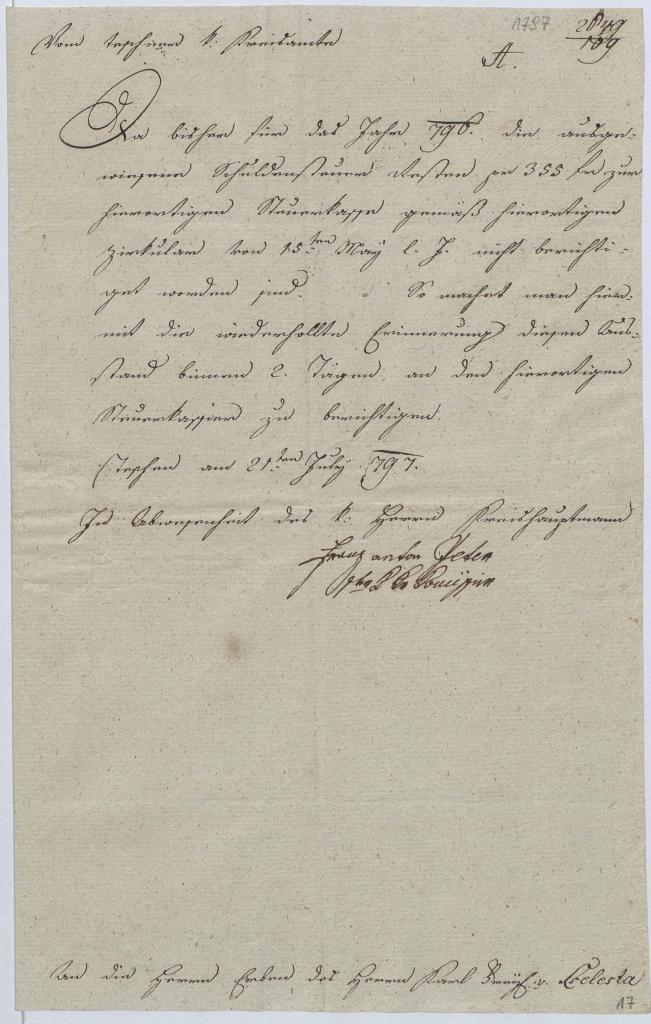 1797
2849
109
Vom teschner k: Kreisamte
A.
Da bisher für das Jahr 796. die ausge-
wiesene Schuldensteuer Resten pr 355 fr zur
hierortigen Steuerkasse gemäß hierortigen
Zirkulare von 15ten May l. J. nicht berichti-
get worden sind. So machet man hier-
mit die wiederhollte Erinnerung diesen Aus-
stand binnen 2. Tägen an den hierortigen
Steuerkassier zu berichtigen.
Teschen am 21ten July 797.
In Abwesenheit des k: Herrn Kreishauptmann
Franz anton Peter
An die Herrn Erben des Herrn Karl v. Celesta
17